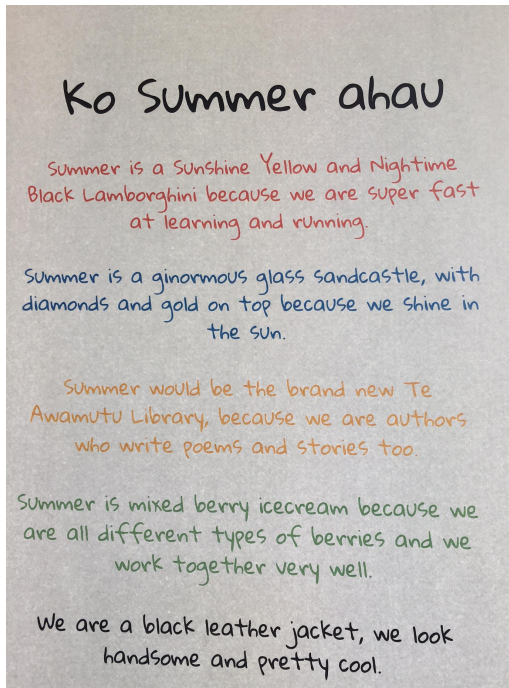 Ko Summer ahau
Summer is a Sunshine Yellow and Nightime
Black Lamborghini because we are super fast
at learning and running.
Summer is a ginormous glass sandcastle, with
diamonds and gold on top because we shine in
the sun.
Summer would be the brand new Te
Awamutu Library, because we are authors
who write poems and stories too.
Summer is mixed berry icecream because we
are all different types of berries and we
work together very well.
We are a black leather jacket, we look
handsome and pretty cool.